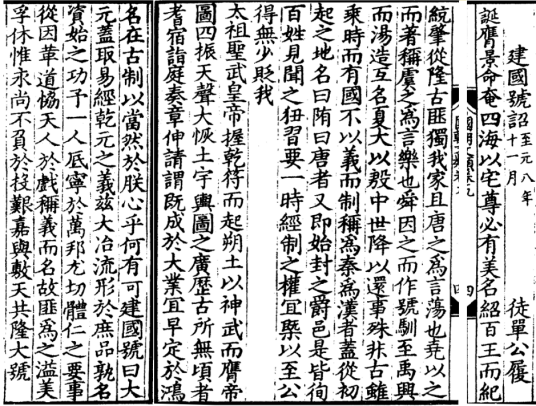 建國號詔 至元八年十一月 徒單公履
誕膺景命奄四海以宅尊必有美名紹百王而紀
四
統肇從隆古匪獨我家且唐之爲言蕩也堯以之
而著稱虞之爲言樂也舜因之而作號馴至禹興
而湯造互名夏大以殷中世降以還事殊非古雖
乘時而有國不以義而制稱爲秦爲漢者蓋從初
起之地名曰陏曰唐者又即始封之爵邑是皆徇
百姓見聞之狃習要一時經制之權宜槩以至公
得無少貶我
太祖聖武皇帝握乾符而起朔土以神武而膺帝
圖四振天聲大恢土宇輿圖之廣歷古所無頃者
耆宿詣庭奏章伸請謂既成於大業宜早定於鴻
名在古制以當然於朕心乎何有可建國號曰大
元蓋取易經乾元之義茲大冶流形於庶品孰名
資始之功予一人底寧於萬邦尤切體仁之要事
從因革道協天人於戲稱義而名故匪爲之溢美
孚休惟永尚不負於投艱嘉與敷天共隆大號